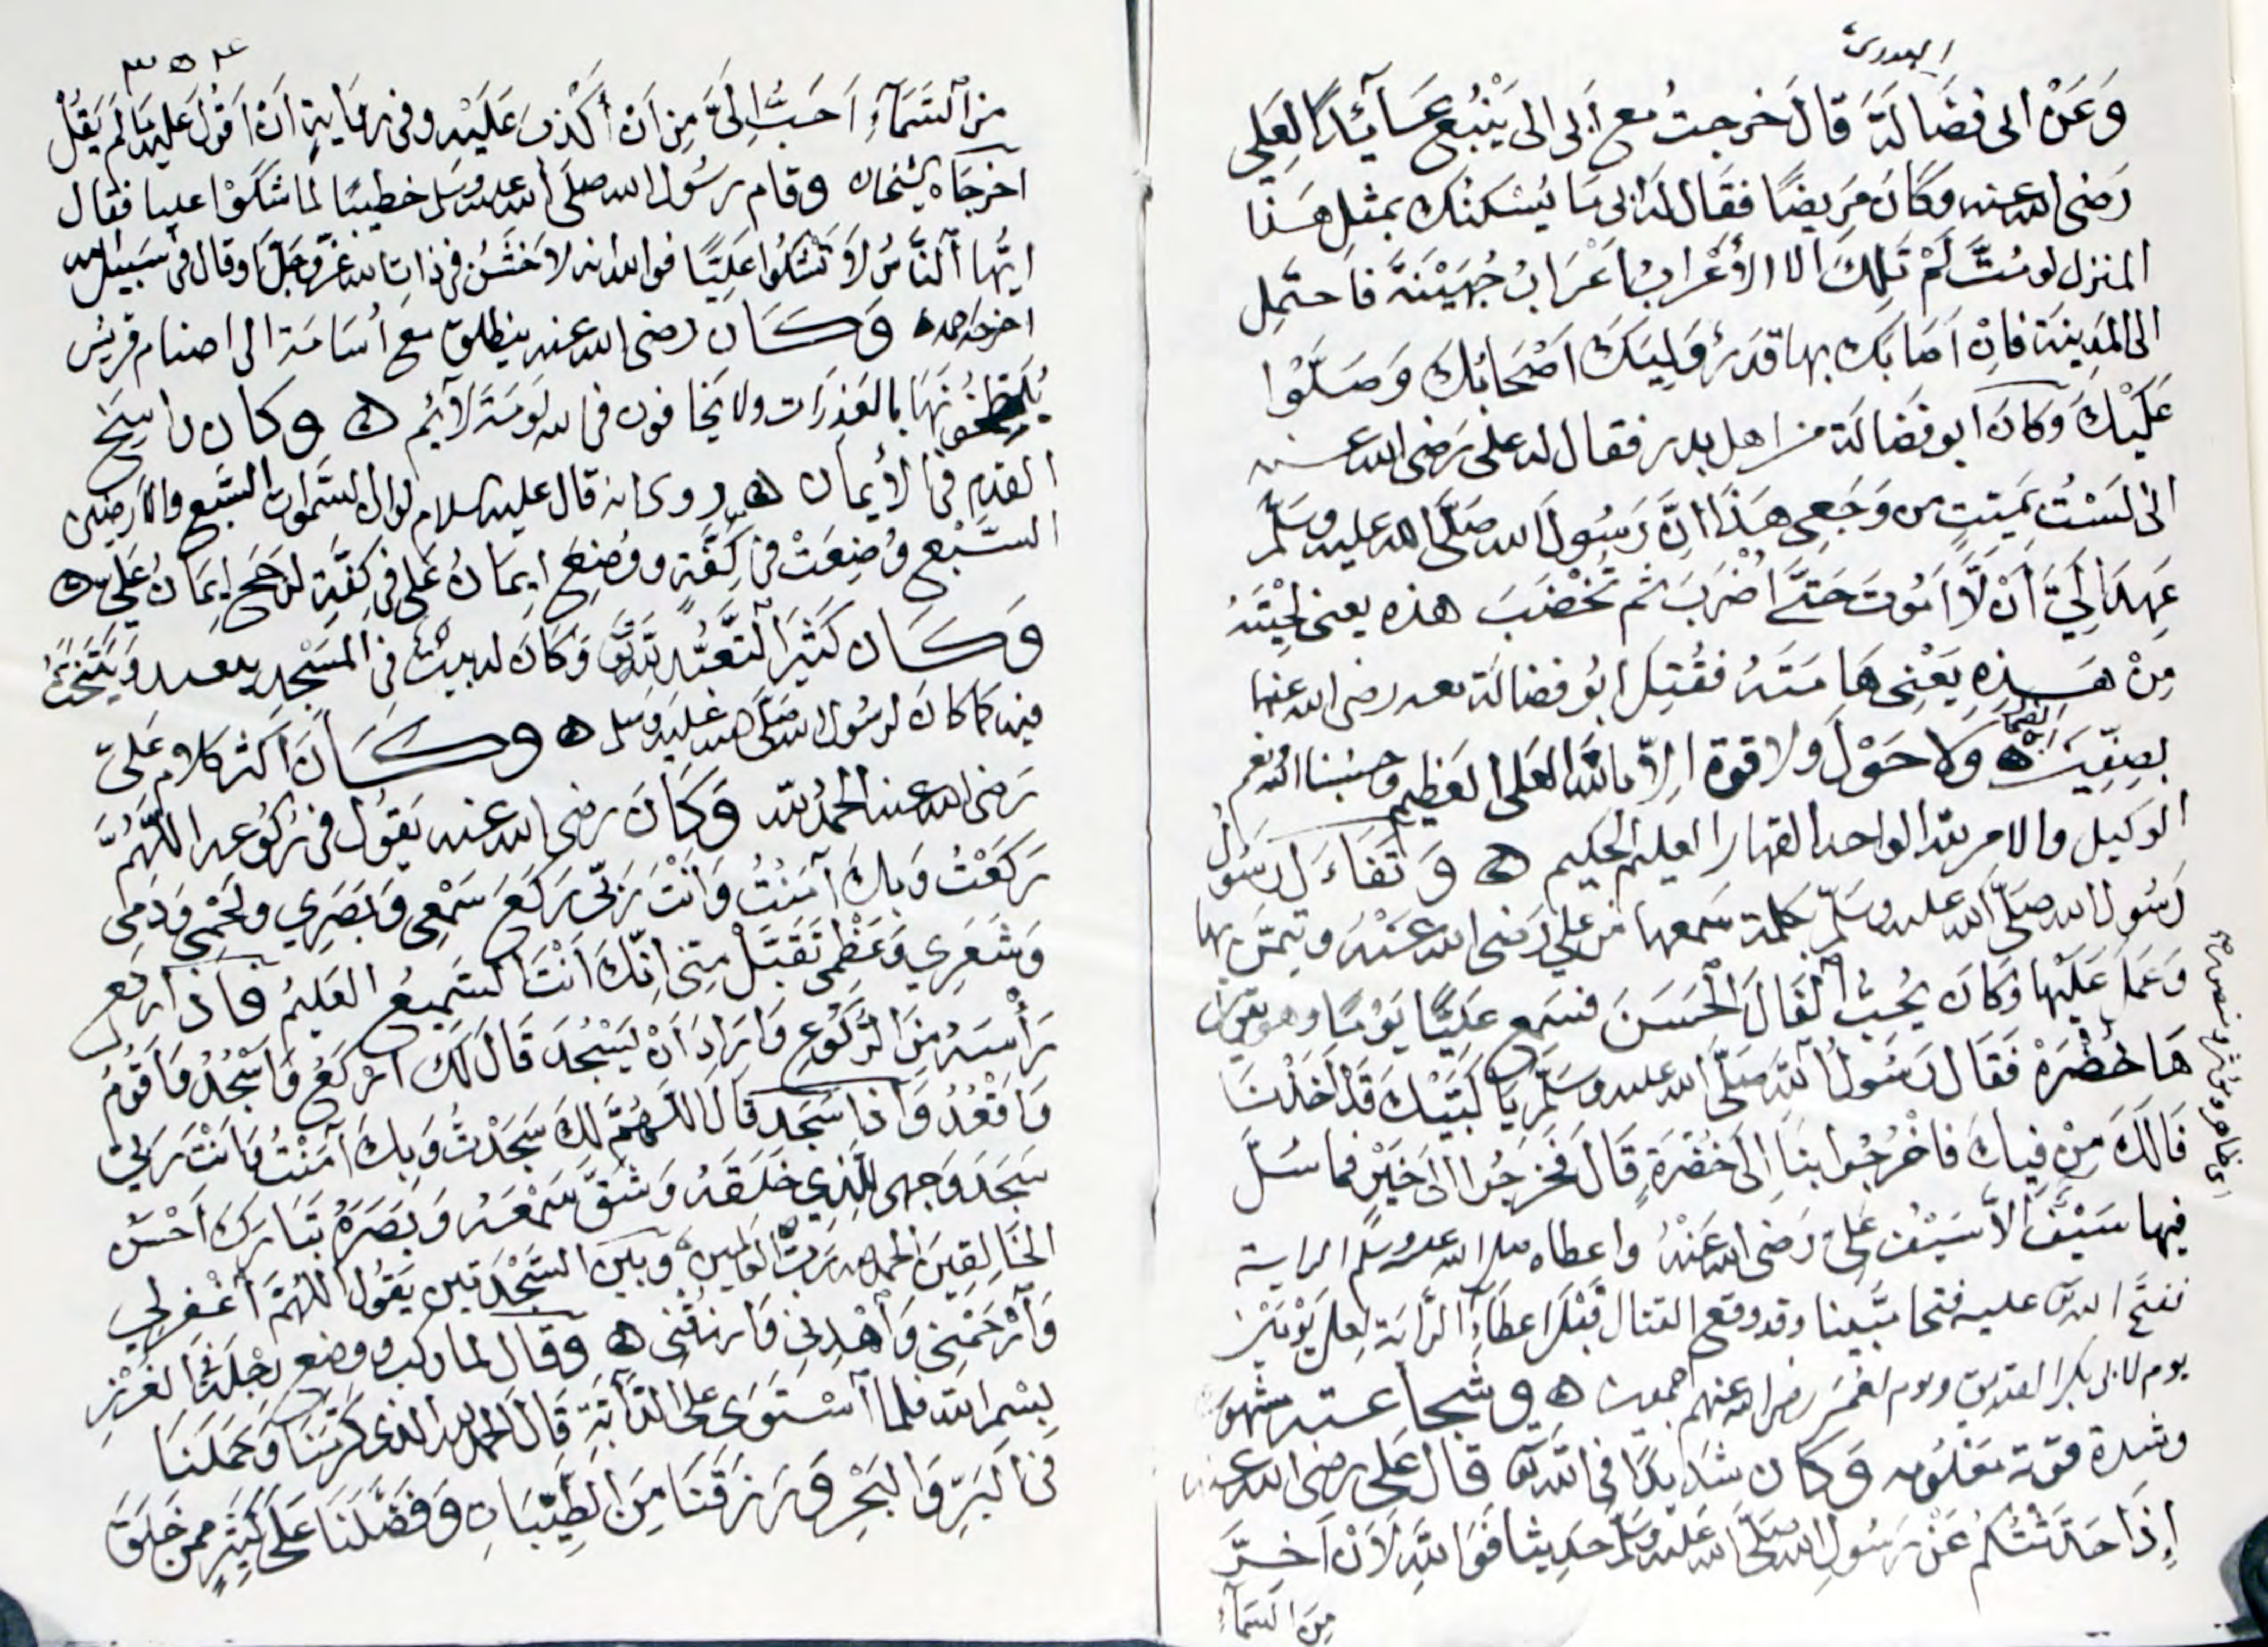 وَعَنْ ابى فضَالَة قَالَ خرجتُ مع اَبى الى يَنْبُع عَسَآئِدًا لِعَلِى
رَضى الله عنه وَكَانَ مَرِيضًا فقَال لَه ابى مَا يُسْكنُك بمثلِ هَذا
المنزل لو متَّ لَمْ تَلِكَ الا الأعْرابُ اَعْرَابُ جُهَيْنَةَ فَاحتَمِل
الى المَدِينَة فَاِنْ اَصَابَكَ بها قدَرٌ وَلِيَكَ اَصْحَابُكَ وَصَلَّوْا
عَلَيْكَ وَكَانَ ابو فَضَالَة من اهل بدر فقال له على رَضى الله عنه
انى لَسْتُ بمَيّتٍ من وَجَعِى هَذَا اِنَّ رَسُولَ الله صَلَّى الله عليه وسَلَّم
عَهِدَ اِلَيَّ أَنْ لَّا اَمُوتَ حَتَّى اُضْرَبَ ثم تَخْضَبَ هذه يعنى لِحْيَتَهُ
مِنْ هَذِهِ يَعْنِى هَامَتَهُ فقُتِلَ ابُو فضالَة معه رضى الله عنهما
بصِفِّينَ ه وَلا حَوْلَ وَلا قوة اِلاّ باللّهِ العَلى العَظِيم وَحسْبُنا الله نعم
الوكيل والامر لله الواحد القهار العليم الحكيم ه وَتَفَاءَلَ رَسُولُ
رَسُول الله صَلَّى الله عليه وسَلَّم بكلمة سَمعها من عَلِي رَضى الله عَنْهُ وتيمَّن بها
وَعَمِلَ عَلَيْهَا وَكَانَ يُحِبُّ الْفَالَ الْحَسَنَ فَسَمِعَ عَلِيًّا يَوْمًا وهو يقول
هَا خُضْرَةْ فَقَال رَسُولُ اللّه صَلَّى الله عليه وسَلَّم يَا لَبَّيْكَ قَدْ اَخَذْنَا
فَالَكَ مِنْ فِيكَ فَاخْرُجُوا بِنَا اِلَى خُضْرَةٍ قَالَ فَخَرَجُوا اِلى خَيْبَر فما سُلَّ
فيها سَيْفٌ اِلاَّ سَيْفُ عَلى رَضى الله عَنْهُ واعطاه صلى الله عليه وسَلَّم الراية
ففتَح الله تعالى عليه فتحا مُّبينا وقد وقع القتال قَبْلَ اِعطَآءِ الرَّايَة لِعلى يَوْمَيْن
يوم لابى بكر الصديق ويوم لعُمَر رضى الله عنهم اجمعين ه وشُجاعته مشهورة
وشدة قوّته معْلُومه وَكان شَدِيدًا فى اللّه تعالى قَال عَلى رضى الله عنه
اِذَا حَدَّثْتُكُم عَنْ رَسُولِ الله صَلَّى الله عَليه وسَلَّم حَدِيثا فَوَاللّهِ لَأنْ اَخِرَّ
مِنَ السَّمَآءِ
اى ظاهره
٣٥٤
مِنَ السَّمَآءِ اَحَبُّ اِلَىَّ مِن اَنْ اَكْذِبَ عَلَيْه وفى رِوَاية اَنْ اَقُولَ عَليه مَا لَم يَقُلْ
اخرجَاه الشيخان وقام رَسُول الله صَلَّى الله عليه وسَلَّم خطيبًا لما شَكَوْا عليا فقال
ايُّهَا النَّاسُ لَا تَشْكُوا عَلِيًّا فو الله انه لاَخْشَنُ فى ذاتِ الله عَزَّ وَجَلَّ اَوقال فى سَبِيلِ الله
اخرجه احمد ه وَكَانَ رضى الله عنه ينطلق مع أُسَامَة الى اصنام قريش
يُلَطِّخُونَهَا بالعَذِرَات ولا يَخافون فى الله لَوْمَةَ لآئِم ه وكان راسِخَ
القدم فى الأيمان ه روى انه قال عليه السلام لو ان السَّموات السَّبع والارضين
السَّبْع وُضِعَتْ فى كِفَّةٍ ووُضِعَ اِيمَانُ عَلِى فى كِفَّةٍ لَرَجَحَ اِيمَانُ عَلِيّ ه
وَكَانَ كَثيرَ التَّعَبُّد لله تعالى وَكَانَ له بيتٌ فى المَسْجِد يتعبد وَيَتَحَنَّثُ
فيه كَمَا كانَ لرسُول الله صَلَّى الله عَليه وسَلَّم ه وكَانَ اكثر كلام عَلىّ
رَضى الله عنه الحمدُ للّه وَكَانَ رضى الله عنه يَقُول فى رُكُوعه اللّهُمَّ لَكَ
رَكَعْتُ وَبِكَ آمَنْتُ وَانْتَ رَبّى رَكَعَ سَمْعِى وَبَصَرِي وَلَحْمِى وَدَمِى
وَشَعَرِي وَعَظْمِى تَقَبَّلْ مِنّى اِنّكَ اَنْتَ السَّمِيعُ العَلِيمُ فَاذَا رَفع
رَأسَهُ مِنَ الرُّكُوعِ وَاَرَادَ اَنْ يَسْجُدَ قَالَ لَكَ اَرْكَعُ وَاَسْجُدُ وَاَقُومُ
وَاَقْعُدُ وَاِذَا سَجَدَ قَال اللّهُمَّ لَكَ سَجَدْتُ وَبِكَ آمَنْتُ وَاَنْتَ رَبّى
سَجَدَ وَجهى للَّذِي خَلَقَهُ وَشَقَّ سَمْعَهُ وَبَصَرَهُ تَبَارَكَ اَحْسَن
الخَالِقِينَ الحمدُ لله رَبِّ العالمين وبين السَّجْدَتين يَقُول اللّهُمَّ اغْفِر لِي
وَارْحَمْنِي وَاهْدِنِى وَارْزُقْنِى ه وقال لما ركب ووضع رِجْلَه فى الغَرْزِ
بِسْمِ اللّه فلما اسْتَوَى على الدَّآبَّة قَالَ الحمدُ لله الذى كَرَّمَنَا وَحَمَلَنَا
فى البَرِّ وَالبَحْرِ وَرَزَقَنَا مِنَ الطَّيِّبَاتِ وَفَضَّلَنَا عَلَى كَثِيرٍ ممن خَلَقَ